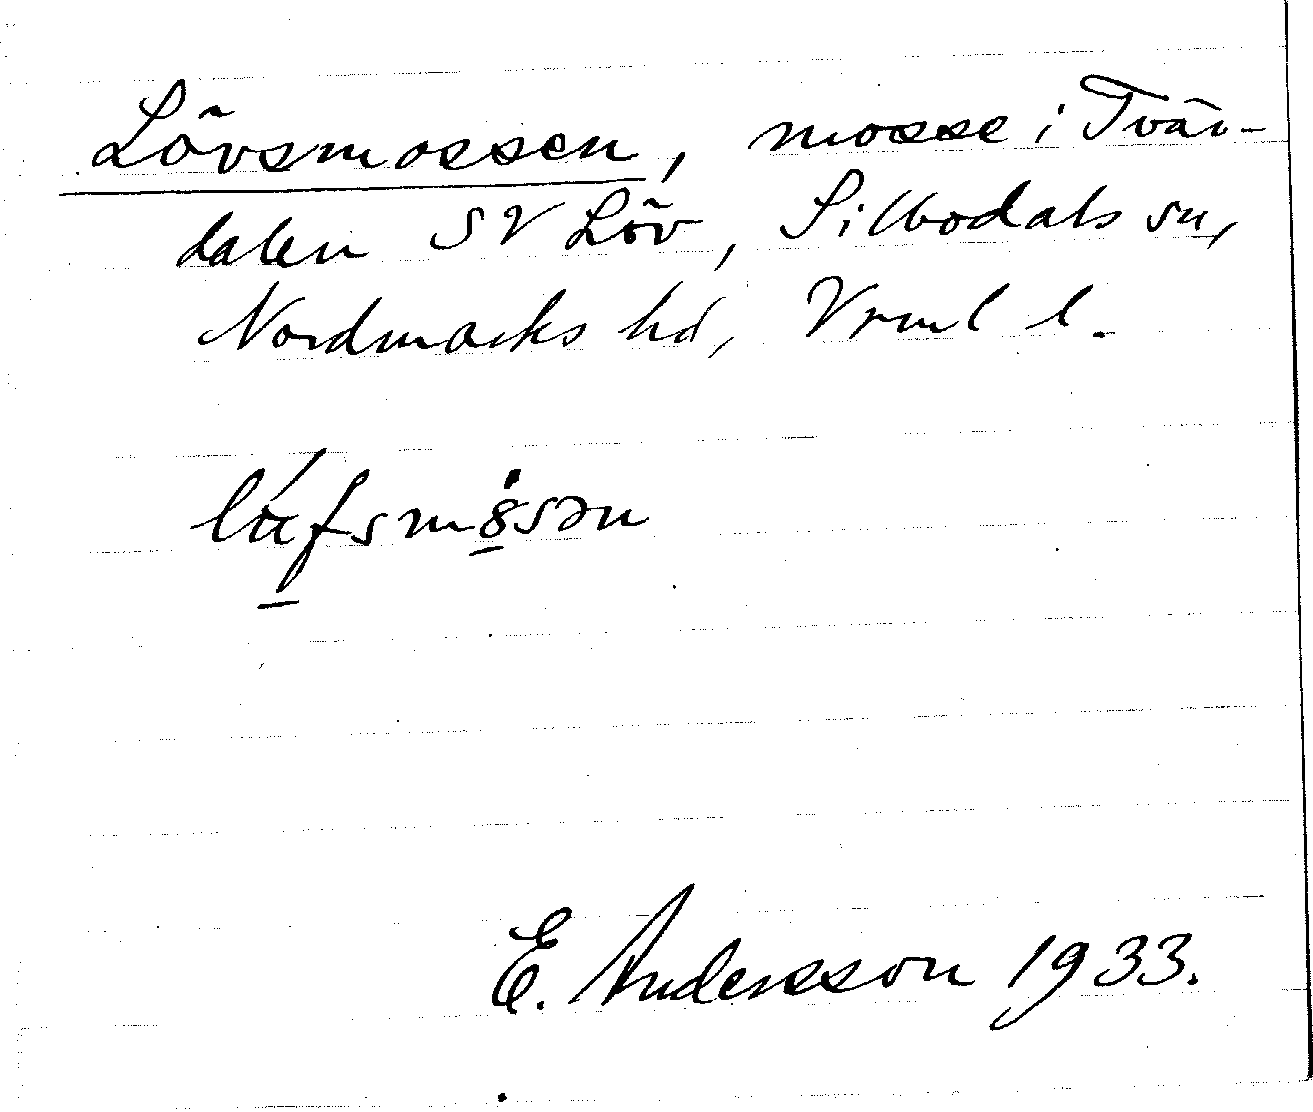 Lövsmossen, mosse i Tvär-
dalen SV Löv, Silbodals sn,
Nordmarks hd, Vrml l.
E. Andersson 1933.